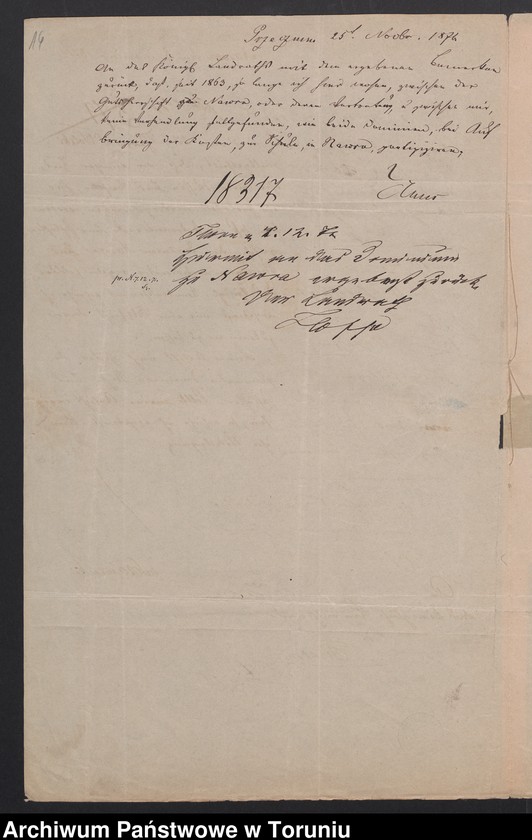 14
25t Novbr. 1876
An das Königl. Landrathsamt mit dem ergebenen Bemerken
zurück, daß, seit 1863, so lange ich hier wohne, zwischen der
Gutsherrschaft zu Nawra, oder deren Vertretung, u zwischen mir,
keine Verhandlung stattgefunden, wie beide Dominien, bei Auf
bringung der Kosten, zur Schule, in Nawra, partizipiren,
18317
Thorn 12.
Hiermit an das Dominium
zu Nawra ergebenst zurück
Der Landrath
Hoppe
Archiwum Państwowe w Toruniu